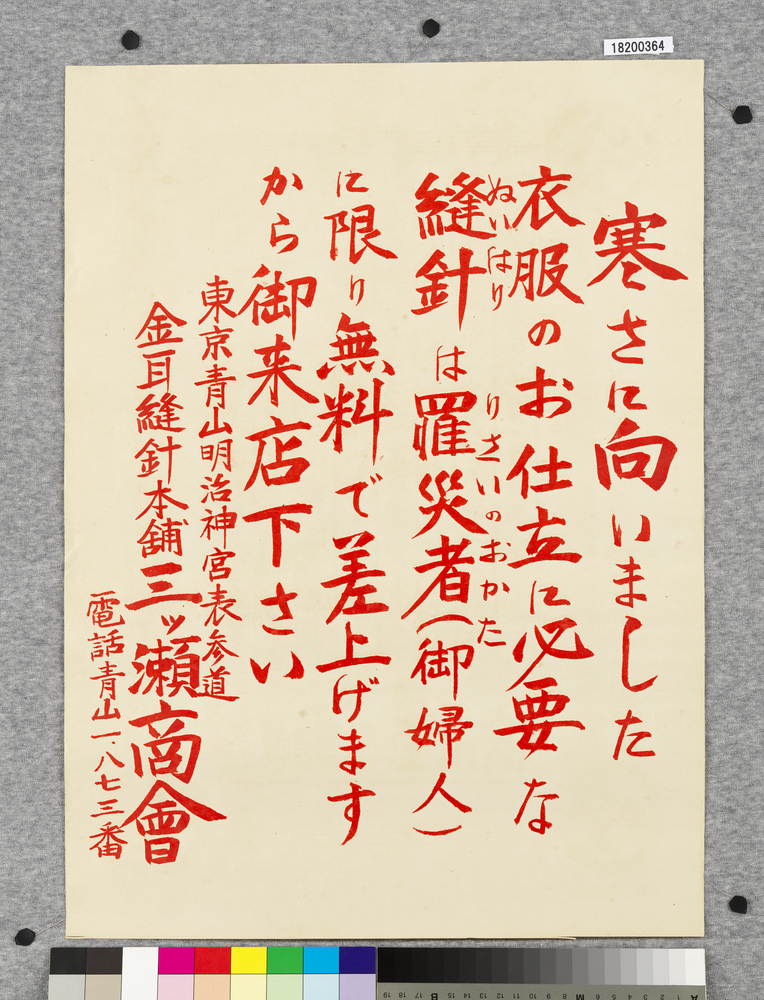 18200364
寒さに向いました
衣服のお仕立に必要な
縫針は羅災者(御婦人)
ぬいはり
りさいのおかた
に限り無料で差上げます
から御来店下さい
東京青山明治神宮表参道
金耳縫針本舗三ッ瀬商會
電話青山一、八七三番